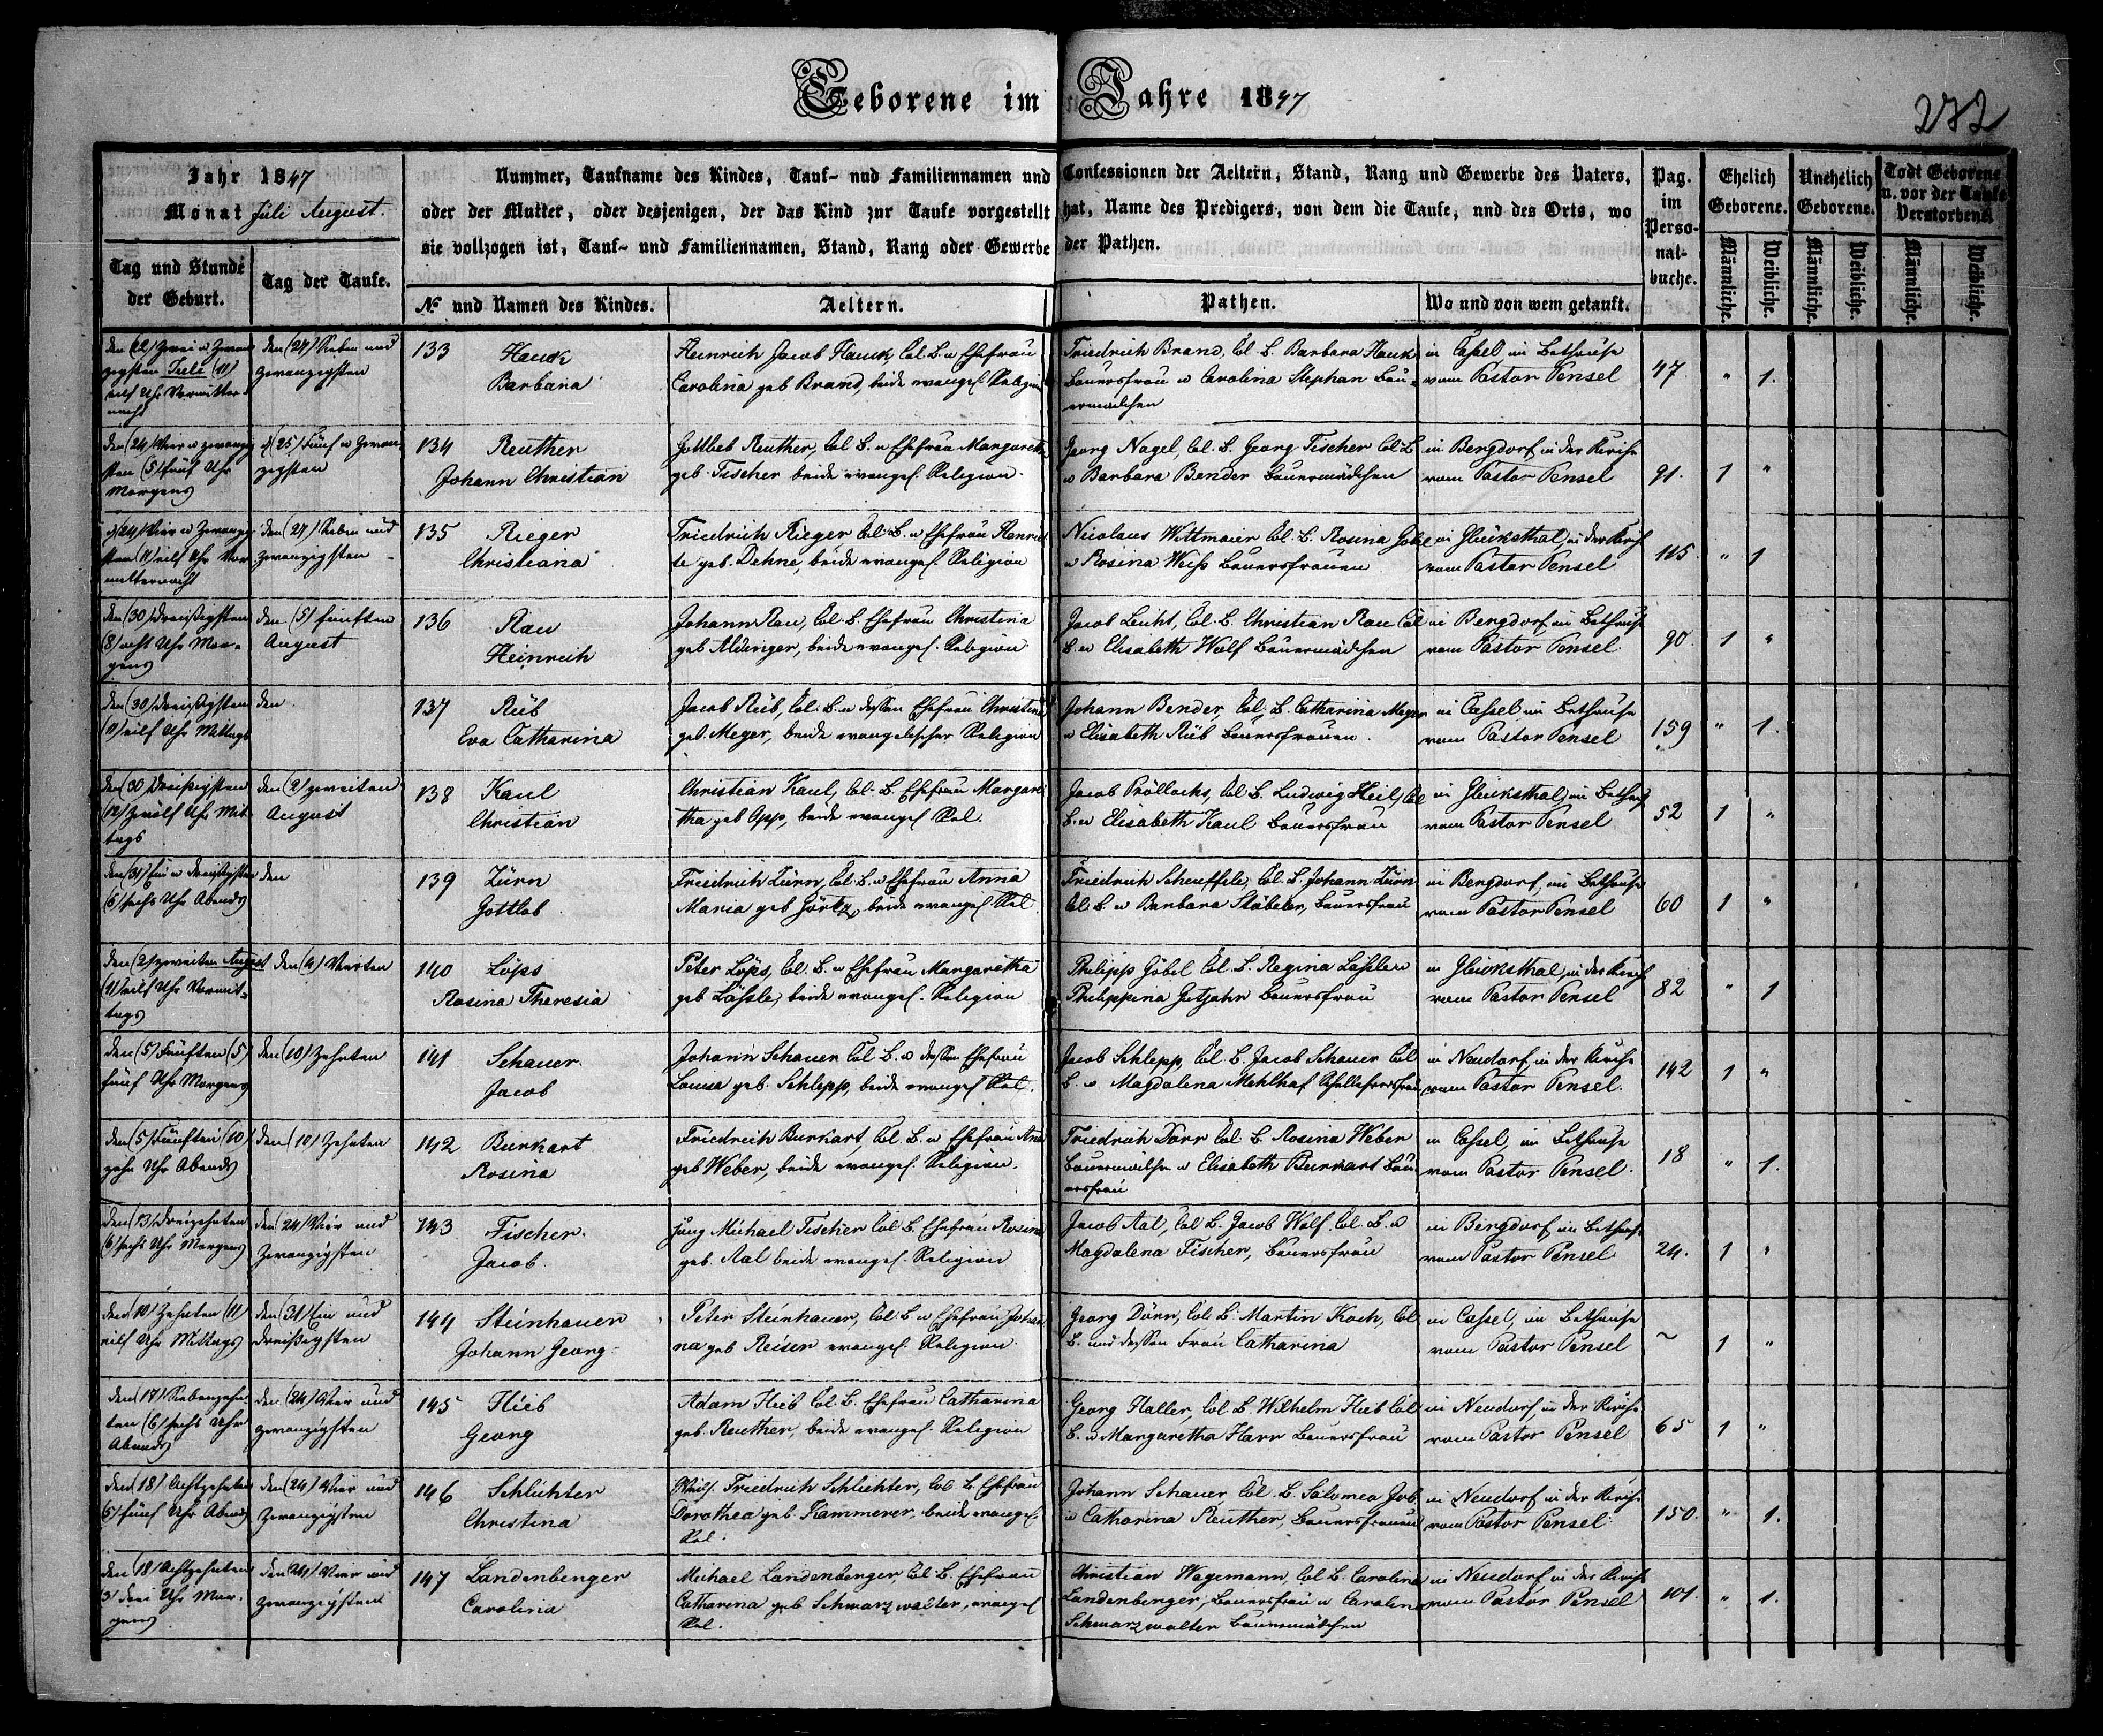 Geborene im Jahre 1847
272
Jahr 1847
Monat Juli August.
Nummer, Taufname des Kindes, Tauf- und Familiennamen und Confessionen der Aeltern, Stand, Rang und Gewerbe des Vaters,
oder der Mutter, oder desjenigen, der das Kind zur Taufe vorgestellt hat, Name des Predigers, von dem die Taufe, und des Orts, wo
sie vollzogen ist, Tauf- und Familiennamen, Stand, Rang oder Gewerbe der Pathen.
Pag. im Perso-nal-buche.
Ehelich Geborene.
Unehelich Geborene.
Todt Geborene u. vor der Taufe Verstorbene.
Tag und Stunde der Geburt.
Tag der Taufe.
№ und Namen des Kindes.
Aeltern.
Pathen.
Wo und von wem getauft.
Männliche. Weibliche. Männliche. Weibliche. Männliche. Weibliche.
den (22) Zwei u Zwan
zigsten Juli (11)
eilf Uhr Vormitter
nacht
den (27) Sieben und
zwanzigsten
133 Hauk
Barbara
Heinrich Jacob Hauk, Col. B. u Ehefrau
Carolina geb Brand, beide evangel. Religion
Friedrich Brand, Col. B. Barbara Hauk
Bauersfrau u Carolina Stephan Bau-
ermädchen
in Cassel im Bethause
vom Pastor Pensel
47 " 1.
den (24) Vier u zwanzig
sten (5) fünf Uhr
Morgens
d (25) Fünf u Zwan
zigsten
134 Reuther
Johann Christian
Gottlieb Reuther, Col. B. u Ehefrau Margaretha
geb. Fischer beide evangel. Religion.
Georg Nagel, Col. B. Georg Fischer Col. B
u Barbara Bender Bauermädchen
in Bergdorf in der Kirche
vom Pastor Pensel
91. 1 "
d (24) Vier u Zwanzig
sten (11) eilf Uhr Vor
mitternacht
den (27) Sieben und
zwanzigsten
135 Rieger
Christiana
Friedrich Rieger Col. B. u Ehefrau Henriet
te geb. Dehne, beide evangel. Religion
Nicolaus Wittmaier Col. B. Rosina Gobel
u Rosina Weiß Bauersfrauen
in Glücksthal, in der Kirch
vom Pastor Pensel
115. " 1
den (30) dreißigsten
(8) acht Uhr Mor-
gens
den (5) fünften
August
136 Rau
Heinrich
Johann Rau, Col. B. Ehefrau Christina
geb Aldinger, beide evangel. Religion
Jacob Leicht, Col. B. Christian Rau Col
B. u Elisabeth Wolf Bauermädchen
in Bergdorf im Bethause
vom Pastor Pensel
90. 1 "
den (30) dreißigsten
(11) eilf Uhr Mittags
den
137 Rüb
Eva Catharina
Jacob Rüb, Col. B. u dessen Ehefrau Christina
geb. Meyer, beide evangelischer Religion
Johann Bender, Col. B. Catharina Meyer
u Elisabeth Rüb Bauersfrauen.
in Cassel, im Bethause
vom Pastor Pensel
159 " 1.
den (30) dreißigsten
(12) zwölf Uhr Mit
tags
den (2) zweiten
August
138 Kaul
Christian
Christian Kaul, Col. B. Ehefrau Margare
tha geb Opp, beide evangel. Rel.
Jacob Pröllochs, Col. B. Ludwig Heil, Col
B. u Elisabeth Kaul Bauersfrau
in Glücksthal, im Bethaus
vom Pastor Pensel
52 1 "
den (31) Ein u dreißigsten
(6) sechs Uhr Abends
den
139 Zürn
Gottlob
Friedrich Zürn, Col. B. u Ehefrau Anna
Maria geb Görtz, beide evangel. Rel.
Friedrich Scheuffele, Col. B. Johann Zürn
Col. B. u Barbara Stäbeler, Bauersfrau
in Bergdorf, im Bethause
vom Pastor Pensel
60 1 "
den (2) zweiten August
(11) eilf Uhr Vormit-
tags
den (4) Vierten
140 Löps
Rosina Theresia
Peter Löps, Col. B. u Ehefrau Margaretha
geb Lössle, beide evangel. Religion
Philipp Göbel Col. B. Regina Lässle u
Philippina Gutjahr Bauersfrau
in Glücksthal, in der Kirch
vom Pastor Pensel
82 " 1
den (5) Fünften (5)
fünf Uhr Morgens
den (10) Zehnten
141 Schauer.
Jacob
Johann Schauer Col. B. u dessen Ehefrau
Louisa geb. Schlepp, beide evangel. Rel.
Jacob Schlepp, Col. B. Jacob Schauer Col
B. u Magdalena Mehlhaf
in Neudorf, in der Kirche
vom Pastor Pensel.
142 1 "
den (5) Fünften (10)
zehn Uhr Abends
den (10) Zehnten
142 Burkart
Rosina
Friedrich Burkart, Col. B. u Ehefrau Anna
geb Weber, beide evangel. Religion.
Friedrich Dorr Col. B Rosina Weber
Bauermädchen u Elisabeth Burkart Bau-
ersfrau
in Cassel, im Bethause
vom Pastor Pensel.
18 " 1.
den (13) dreizehnten
(6) sechs Uhr Morgens
den (24) Vier und
Zwanzigsten
143 Fischer.
Jacob.
jung Michael Fischer Col. B. Ehefrau Rosina
geb. Aal beide evangel. Religion
Jacob Aal, Col. B. Jacob Wolf, Col. B. u
Magdalena Fischer, Bauersfrau
in Bergdorf im Bethause
vom Pastor Pensel
24. 1 "
den (10) Zehnten (11)
eilf Uhr Mittags
den (31) Ein und
dreißigsten
144 Steinhauer
Johann Georg.
Peter Steinhauer, Col. B. u Ehefrau Johan
na geb Reiser evangel. Religion.
Georg Dörr, Col. B. Martin Koch, Col
B. und dessen Frau Catharina
in Cassel, im Bethause
vom Pastor Pensel
~ 1 "
den (17) Siebenzehn
ten (6) sechs Uhr
Abends
den (24) Vier und
zwanzigsten
145 Hieb
Georg
Adam Hieb Col. B. Ehefrau Catharina
geb. Reuther, beide evangel. Religion
Georg Haller, Col. B. Wilhelm Hieb Col
B. u Margaretha Harr Bauersfrau
in Neudorf, in der Kirche
vom Pastor Pensel
65 1 "
den (18) Achtzehnten
(5) fünf Uhr Abends
den (24) Vier und
Zwanzigsten
146 Schlichter
Christina
Friedrich Schlichter, Col. B. Ehefrau
Dorothea geb. Kammerer, beide evangel.
Rel.
Johann Schauer Col. B. Salomea Job
u Catharina Reuther, Bauersfrauen
in Neudorf, in der Kirche
vom Pastor Pensel.
150. " 1.
den (18) Achtzehnten
(3) drei Uhr Mor-
gens
den (24) Vier und
zwanzigsten
147 Landenberger
Carolina
Michael Landenberger, Col. B. Ehefrau
Catharina geb Schwarzwalter, evangel
Rel.
Christian Wagemann, Col. B. Carolina
Landenberger, Bauersfrau u Carolina
Schwarzwalter Bauermädchen
in Neudorf, in der Kirche
vom Pastor Pensel
101. " 1.